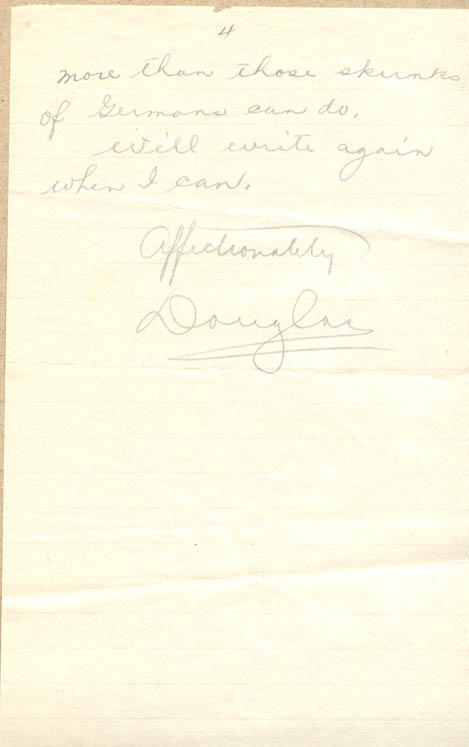 4
more than those skunks
of Germans can do.
We'll write again
when I can.
Affectionately
Douglas